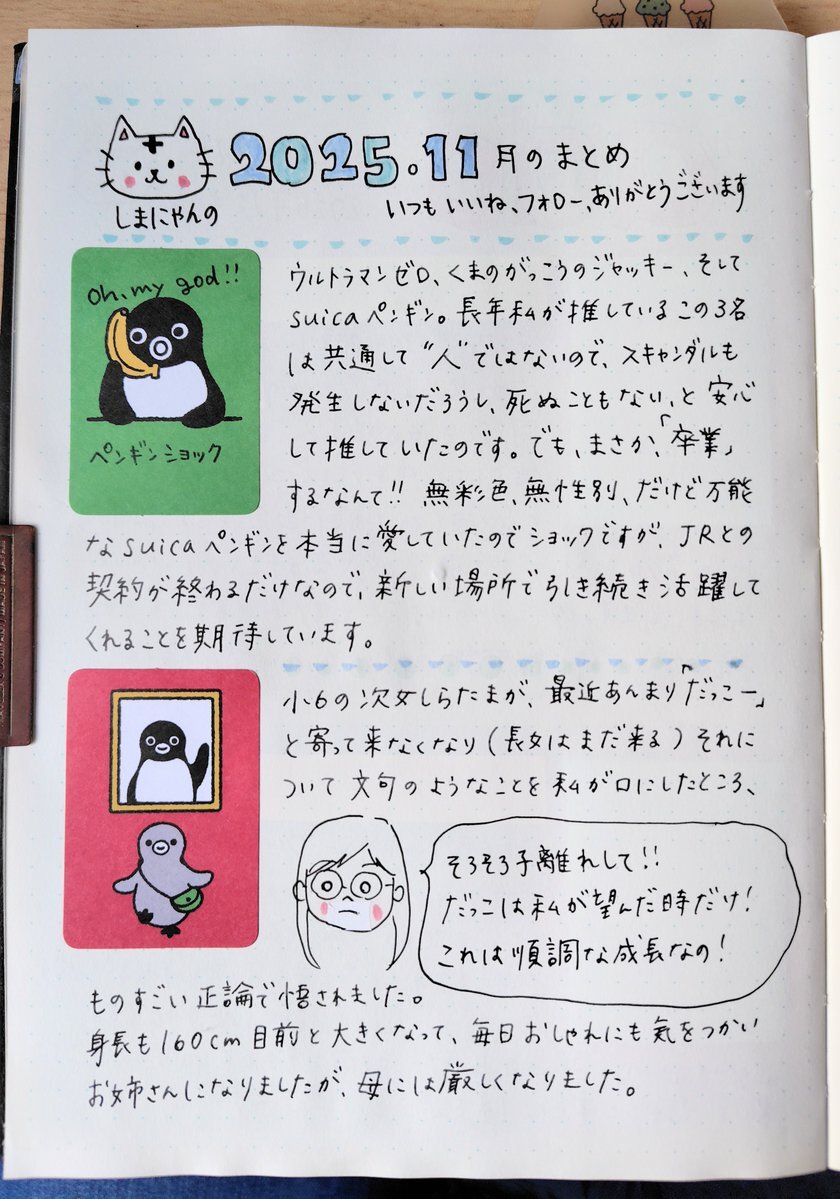 しまにゃんの
2025.11月のまとめ
いつもいいね、フォロー、ありがとうございます
Oh, my god!!
ペンギンショック
ウルトラマンゼロ、くまのがっこうのジャッキー、そして
suicaペンギン。長年私が推しているこの3名
は共通して“人”ではないので、スキャンダルも
発生しないだろうし、死ぬこともない、と安心
して推していたのです。でも、まさか、「卒業」
するなんて!! 無彩色、無性別、だけど万能
なsuicaペンギンを本当に愛していたのでショックですが、JRとの
契約が終わるだけなので、新しい場所で引き続き活躍して
くれることを期待しています。
小6の次女しらたまが、最近あんまり「だっこー」
と寄って来なくなり(長女はまだ来る)それに
ついて文句のようなことを私が口にしたところ、
そろそろ子離れして!!
だっこは私が望んだ時だけ!
これは順調な成長なの!
ものすごい正論で悟されました。
身長も160cm目前と大きくなって、毎日おしゃれにも気をつかい
お姉さんになりましたが、母には厳しくなりました。